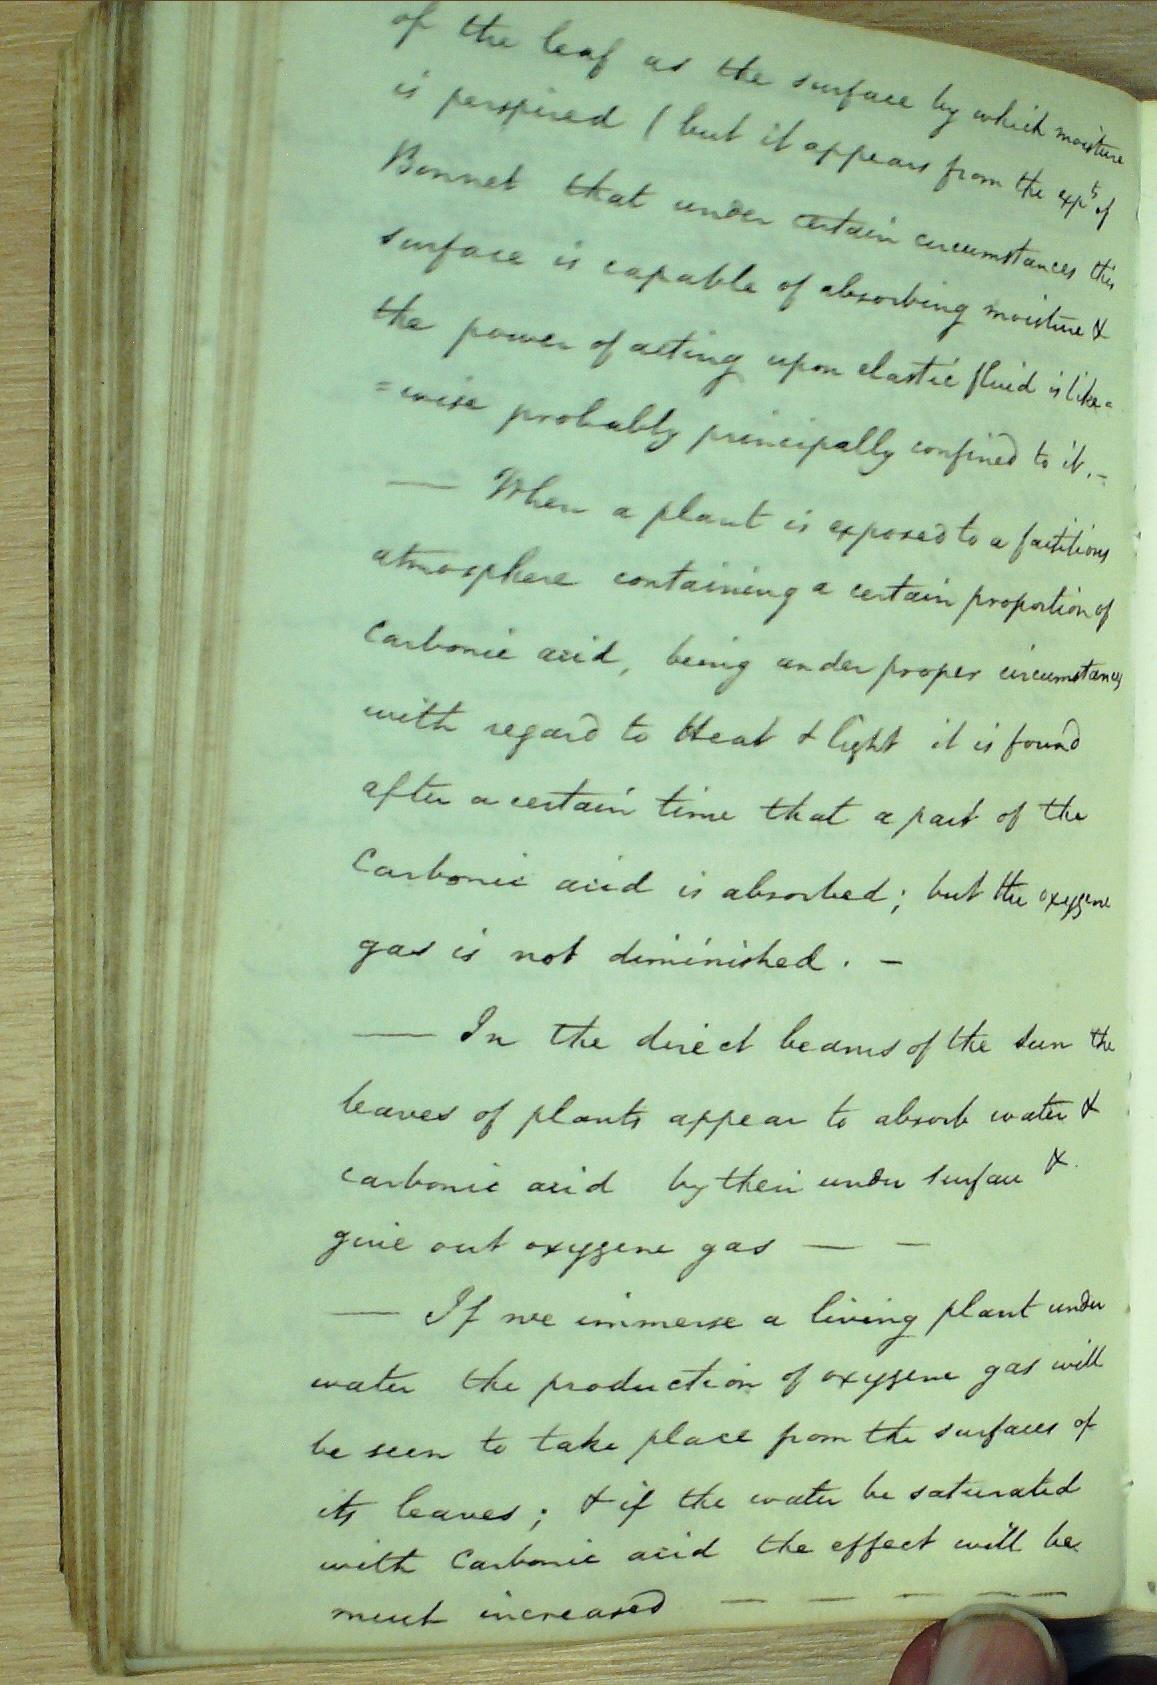 of the leaf as the surface by which moisture
is perspired ( but it appears from the expts of
Bonnet that under certain circumstances this
surface is capable of absorbing moisture &
the power of acting upon elastic fluid is like=
=wise probably principally confined to it. -
— When a plant is exposed to a factitious
atmosphere containing a certain proportion of
Carbonic acid, being under proper circumstances
with regard to Heat & light it is found
after a certain time that a part of the
Carbonic acid is absorbed; but the oxygene
gas is not diminished. -
— In the direct beams of the sun the
leaves of plants appear to absorb water &
carbonic acid by their under surface &
give out oxygene gas — —
— If we immerse a living plant under
water the production of oxygene gas will
be seen to take place from the surfaces of
its leaves; & if the water be saturated
with Carbonic acid the effect will be
much increased — — — — —